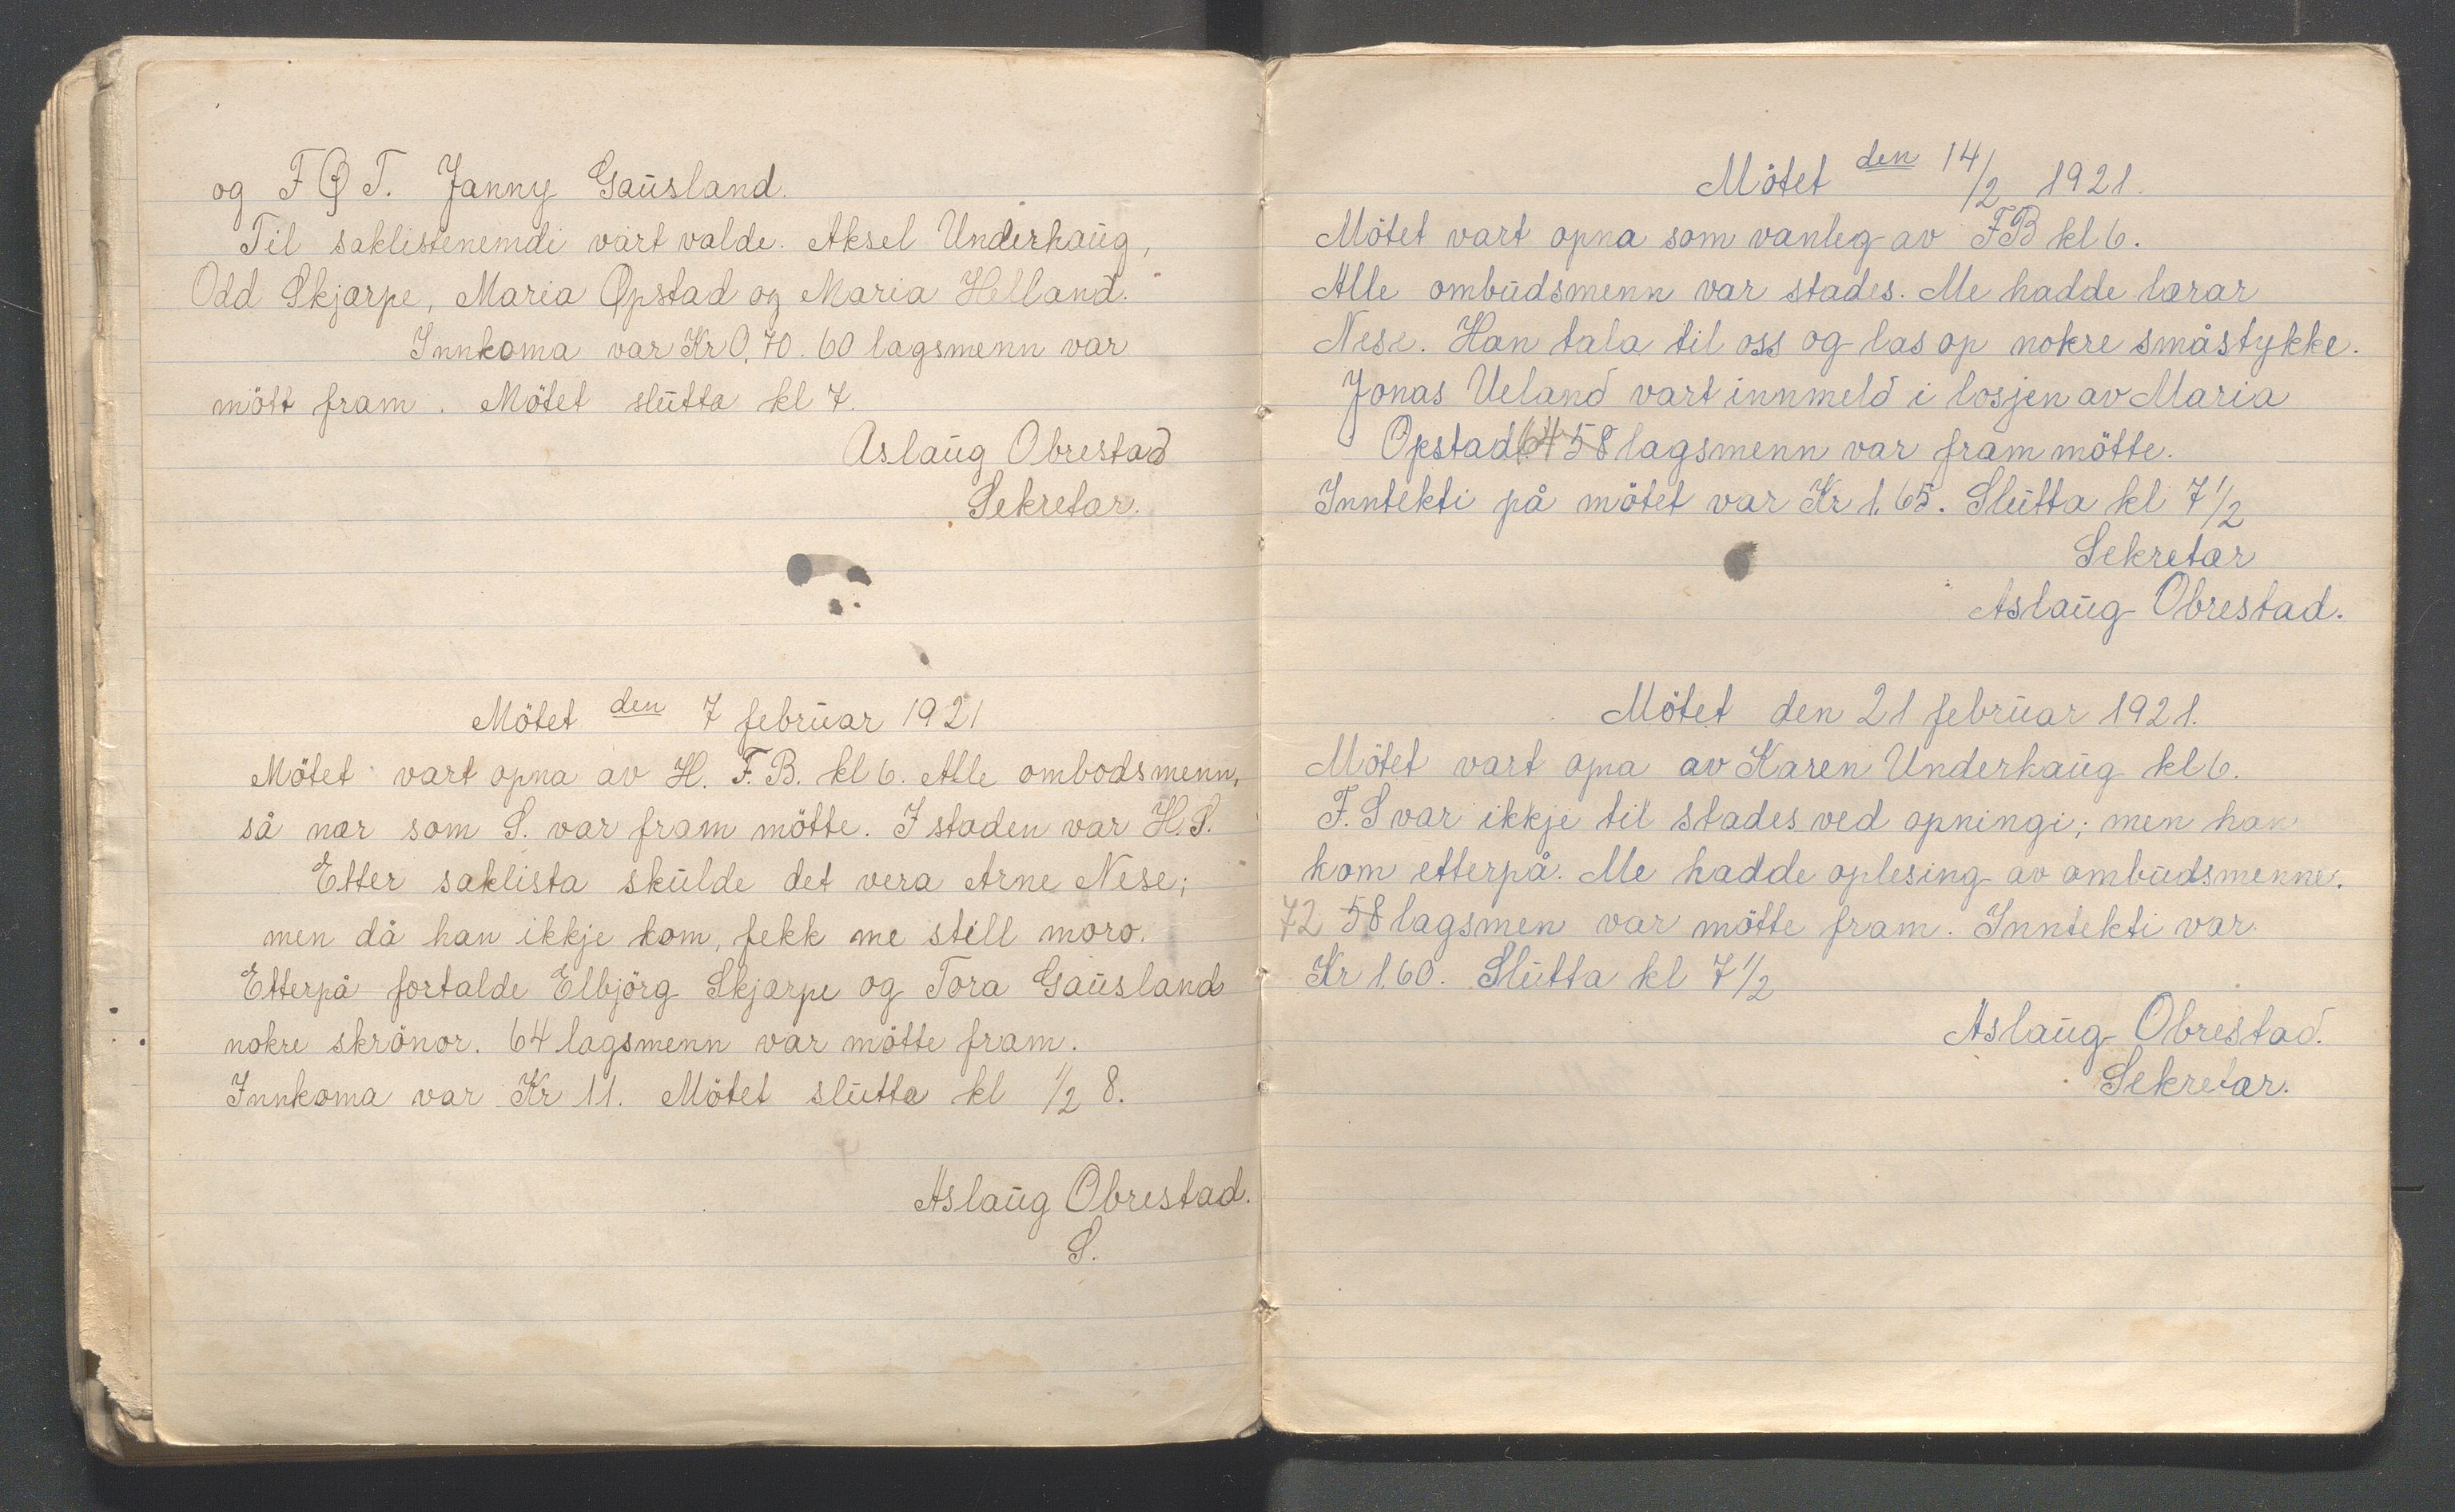 og F Ø T. Janny Gausland.
Til saklistenemdi vart valde. Aksel Underhaug,
Odd Skjærpe, Maria Opstad og Maria Helland.
Innkoma var Kr 0,70. 60 lagsmenn var
mött fram. Mötet slutta kl 7.
Aslaug Obrestad
Sekretær.
Mötet den 7 februar 1921
Mötet vart opna av H. F. B. kl 6. Alle ombodsmenn,
så nær som S. var fram mötte. I staden var H.S.
Etter saklista skulde det vera Arne Nese;
men då han ikkje kom, fekk me still moro.
Etterpå fortalde Elbjörg Skjærpe og Tora Gausland
nokre skrönor. 64 lagsmenn var mötte fram.
Innkoma var Kr 11. Mötet slutta kl 1/2 8.
Aslaug Obrestad.
S.
Mötet den 14/2 1921.
Mötet vart opna som vanleg av F B kl 6.
Alle ombudsmenn var stades. Me hadde lærar
Nese. Han tala til oss og las op nokre småstykke.
Jonas Ueland vart innmeld i losjen av Maria
Opstad. 64 58 lagsmenn var fram mötte.
Inntekti på mötet var Kr 1,65. Slutta kl 7 1/2
Sekretær
Aslaug Obrestad.
Mötet den 21 februar 1921.
Mötet vart opna av Karen Underhaug kl 6.
F. S var ikkje til stades ved opningi; men han
kom etterpå. Me hadde oplesing av ombudsmenne.
72 58 lagsmen var mötte fram. Inntekti var
Kr 1,60. Slutta kl 7 1/2
Aslaug Obrestad.
Sekretær.